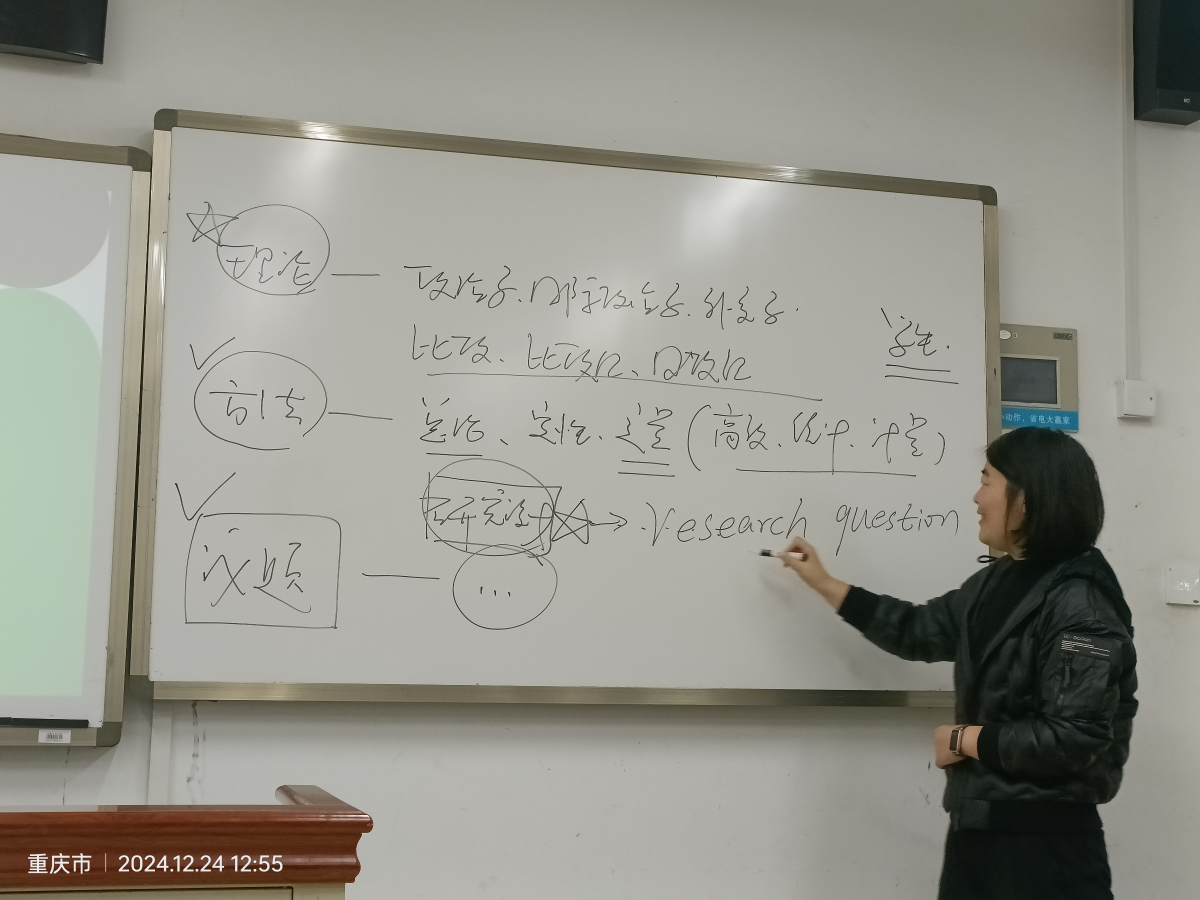 理论 — 政治学、国际政治学、外交学.
比政、比政化、
学生.
方法 — 定性、定量(高政、统计、计量)
研究设计 → research question
议题 — ...
小动作，省电大赢家
重庆市 | 2024.12.24 12:55